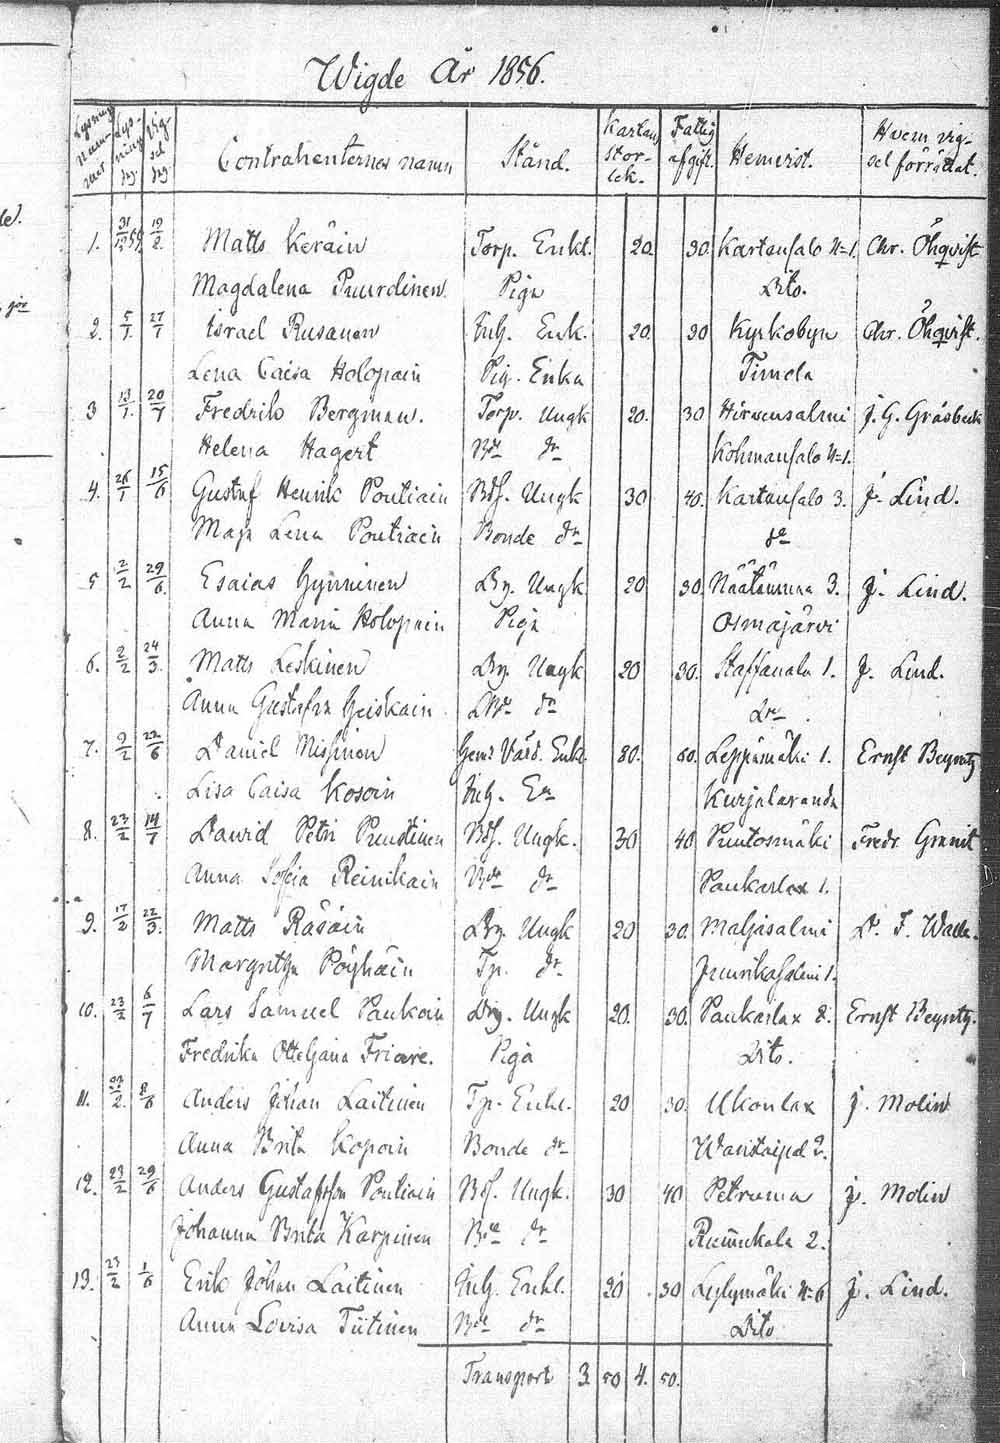 Wigde År 1856.
Lysning Num- mer | Lys- ning dag. | Vig- sel dag | Contrahenternes namn | Stånd. | Kartans stor- lek. | Fattig afgift. | Hemvist. | Hvem vig- sel förrättat.
1. 31/12 55 19/2 Matts Keräin Torp. Enkl. 20. 30. Kartansalo N=1. Chr. Öhqvist
Magdalena Puurdinen Piga Dito.
2. 5/1. 27/1 Israel Rusanen Inh. Enk. 20. 30 Kyrkobyn Chr. Öhqvist.
Lena Caisa Holopain Pig. Enka Timola
3 13/1. 20/7 Fredrik Bergman. Torp. Ungk 20. 30 Hirvensalmi J. G. Gråsbeck
Helena Hagert Bde dr Kohmansalo N=1.
4. 26/1 15/6 Gustaf Henrik Poutiain Bds. Ungk 30 40. Kartansalo 3. J. Lind.
Maja Lena Poutiain Bonde dr do
5 2/2 29/6. Esaias Hynninen Drg. Ungk 20 30. Näätänmaa 3. J. Lind.
Anna Maria Holopain Piga Osmajärvi
6. 2/2 24/3. Matts Leskinen Drg. Ungk 20 30. Staffanala 1. J. Lind.
Anna Gustafva Heiskain Bde dr Do
7. 9/2 22/6 Daniel Missinen Hemd Värd. Enkl. 80. 60. Leppämäki 1. Ernst Beyntz
Lisa Caisa Kosoin Inh. Ea Kurjalaranda
8. 23/2 14/7 David Petri Puustinen Bds. Ungk. 30 40 Puutosmäki Fredr Granit
Anna Sofia Reinikain Bde dr Paukarlax 1.
9. 17/2 22/3. Matts Räsäin Drg. Ungk 20 30. Maljasalmi D. F.
Margretha Pöyhäin Tp. dr
10. 23/2 6/7 Lars Samuel Paukoin Drg. Ungk 20. 30. Paukarlax 8. Ernst Beyntz.
Fredrika Ottiljana Friare. Piga Dito.
11. 23/2. 8/6 Anders Johan Laitinen Tp. Enkl. 20 30. Ukonlax J. Molin
Anna Brita Kopoin Bonde dr 2.
12. 23/2 29/6 Anders Gustafsson Poutiain Bds. Ungk. 30 40 Petruma J. Molin
Johanna Brita Karpinen Bde dr Rimmikala 2.
13. 23/2 1/6 Erik Johan Laitinen Inh. Enkl. 20 30 Leglymäki N=6 J. Lind.
Anna Lovisa Tiitinen Bde dr Dito
Transport 3. 50 4. 50.